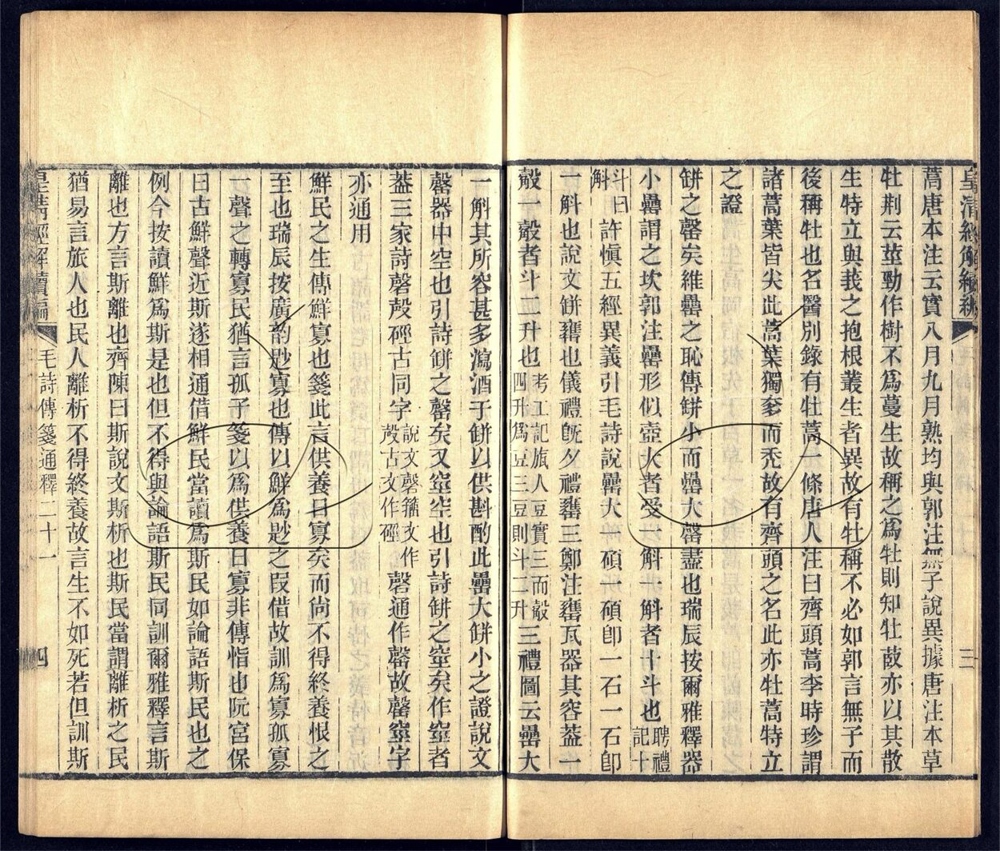 皇清經解續編
三
蒿唐本注云實八月九月熟均與郭注無子說異據唐注本草
牡荆云莖勁作樹不爲蔓生故稱之爲牡則知牡菣亦以其散
生特立與莪之抱根叢生者異故有牡稱不必如郭言無子而
後稱牡也名醫別錄有牡蒿一條唐人注曰齊頭蒿李時珍謂
諸蒿葉皆尖此蒿葉獨奓而禿故有齊頭之名此亦牡蒿特立
之證
缾之罄矣維罍之恥傳缾小而罍大罄盡也瑞辰按爾雅釋器
小罍謂之坎郭注罍形似壺大者受一斛一斛者十斗也聘禮記十
斗曰斛許愼五經異義引毛詩說罍大一碩一碩卽一石一石卽
一斛也說文缾罋也儀禮旣夕禮罋三鄭注罋瓦器其容葢一
觳一觳者斗二升也考工記旊人豆實三而觳四升爲豆三豆則斗二升三禮圖云罍大
一斛其所容甚多瀉酒于缾以供斟酌此罍大缾小之證說文
罄器中空也引詩缾之罄矣又窒空也引詩缾之窒矣作窒者
葢三家詩罄殸硜古同字說文磬籀文作殸古文作硜磬通作罄故罄窒字
亦通用
鮮民之生傳鮮寡也箋此言供養日寡矣而尙不得終養恨之
至也瑞辰按廣韵尟寡也傳以鮮爲尟之叚借故訓爲寡孤寡
一聲之轉寡民猶言孤子箋以爲供養日寡非傳恉也阮宮保
曰古鮮聲近斯遂相通借鮮民當讀爲斯民如論語斯民也之
例今按讀鮮爲斯是也但不得與論語斯民同訓爾雅釋言斯
離也方言斯離也齊陳曰斯說文斯析也斯民當謂離析之民
猶易言旅人也民人離析不得終養故言生不如死若但訓斯
皇清經解續編
毛詩傳箋通釋二十一
四